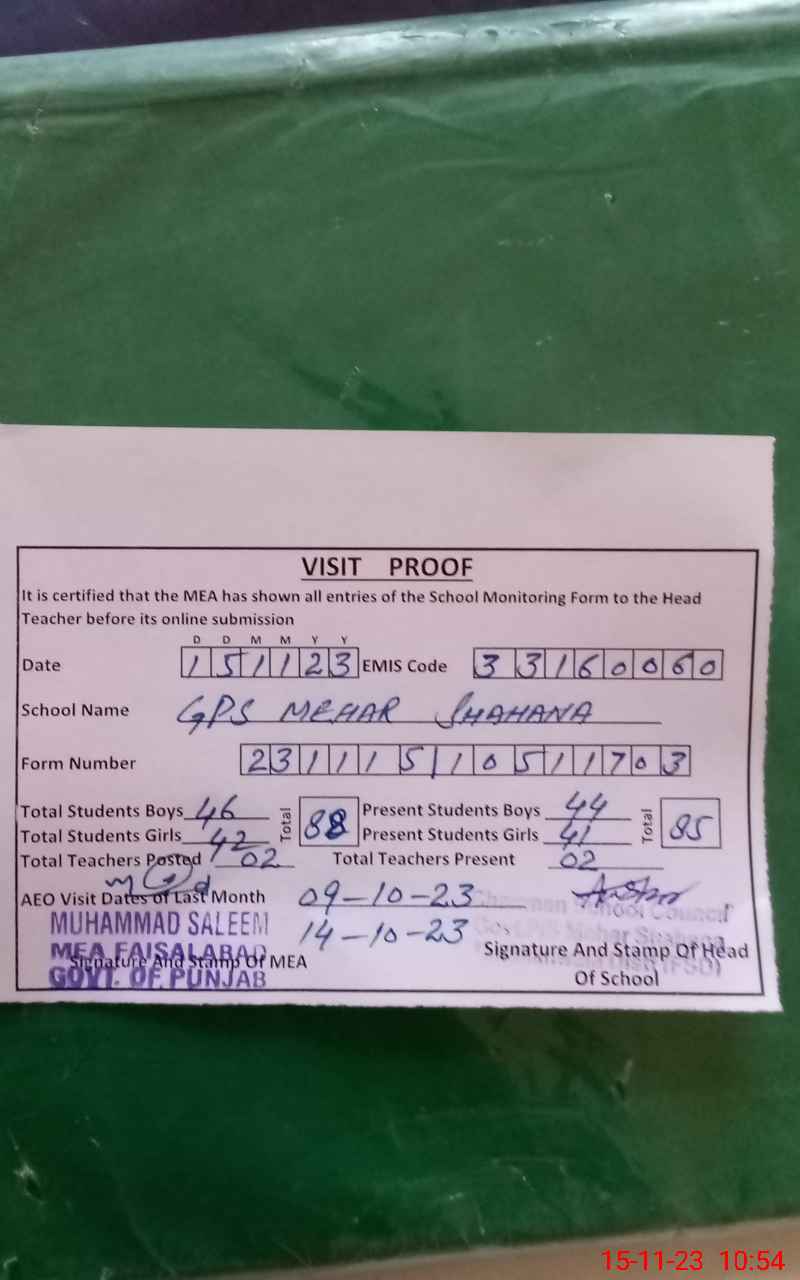 VISIT PROOF
It is certified that the MEA has shown all entries of the School Monitoring Form to the Head
Teacher before its online submission
D D M M Y Y
Date 1 5 1 1 2 3 EMIS Code 3 3 1 6 0 0 6 0
School Name GPS MEHAR SHAHANA
Form Number 2 3 1 1 1 5 1 1 0 5 1 1 7 0 3
Total Students Boys 46 Total 88 Present Students Boys 44 Total 85
Total Students Girls 42 Present Students Girls 41
Total Teachers Posted 02 Total Teachers Present 02
AEO Visit Dates of Last Month 09-10-23
14-10-23
MUHAMMAD SALEEM
MEA FAISALABAD
GOVT. OF PUNJAB
Signature And Stamp Of MEA
Chairman School Council
Signature And Stamp Of Head
Of School
15-11-23 10:54